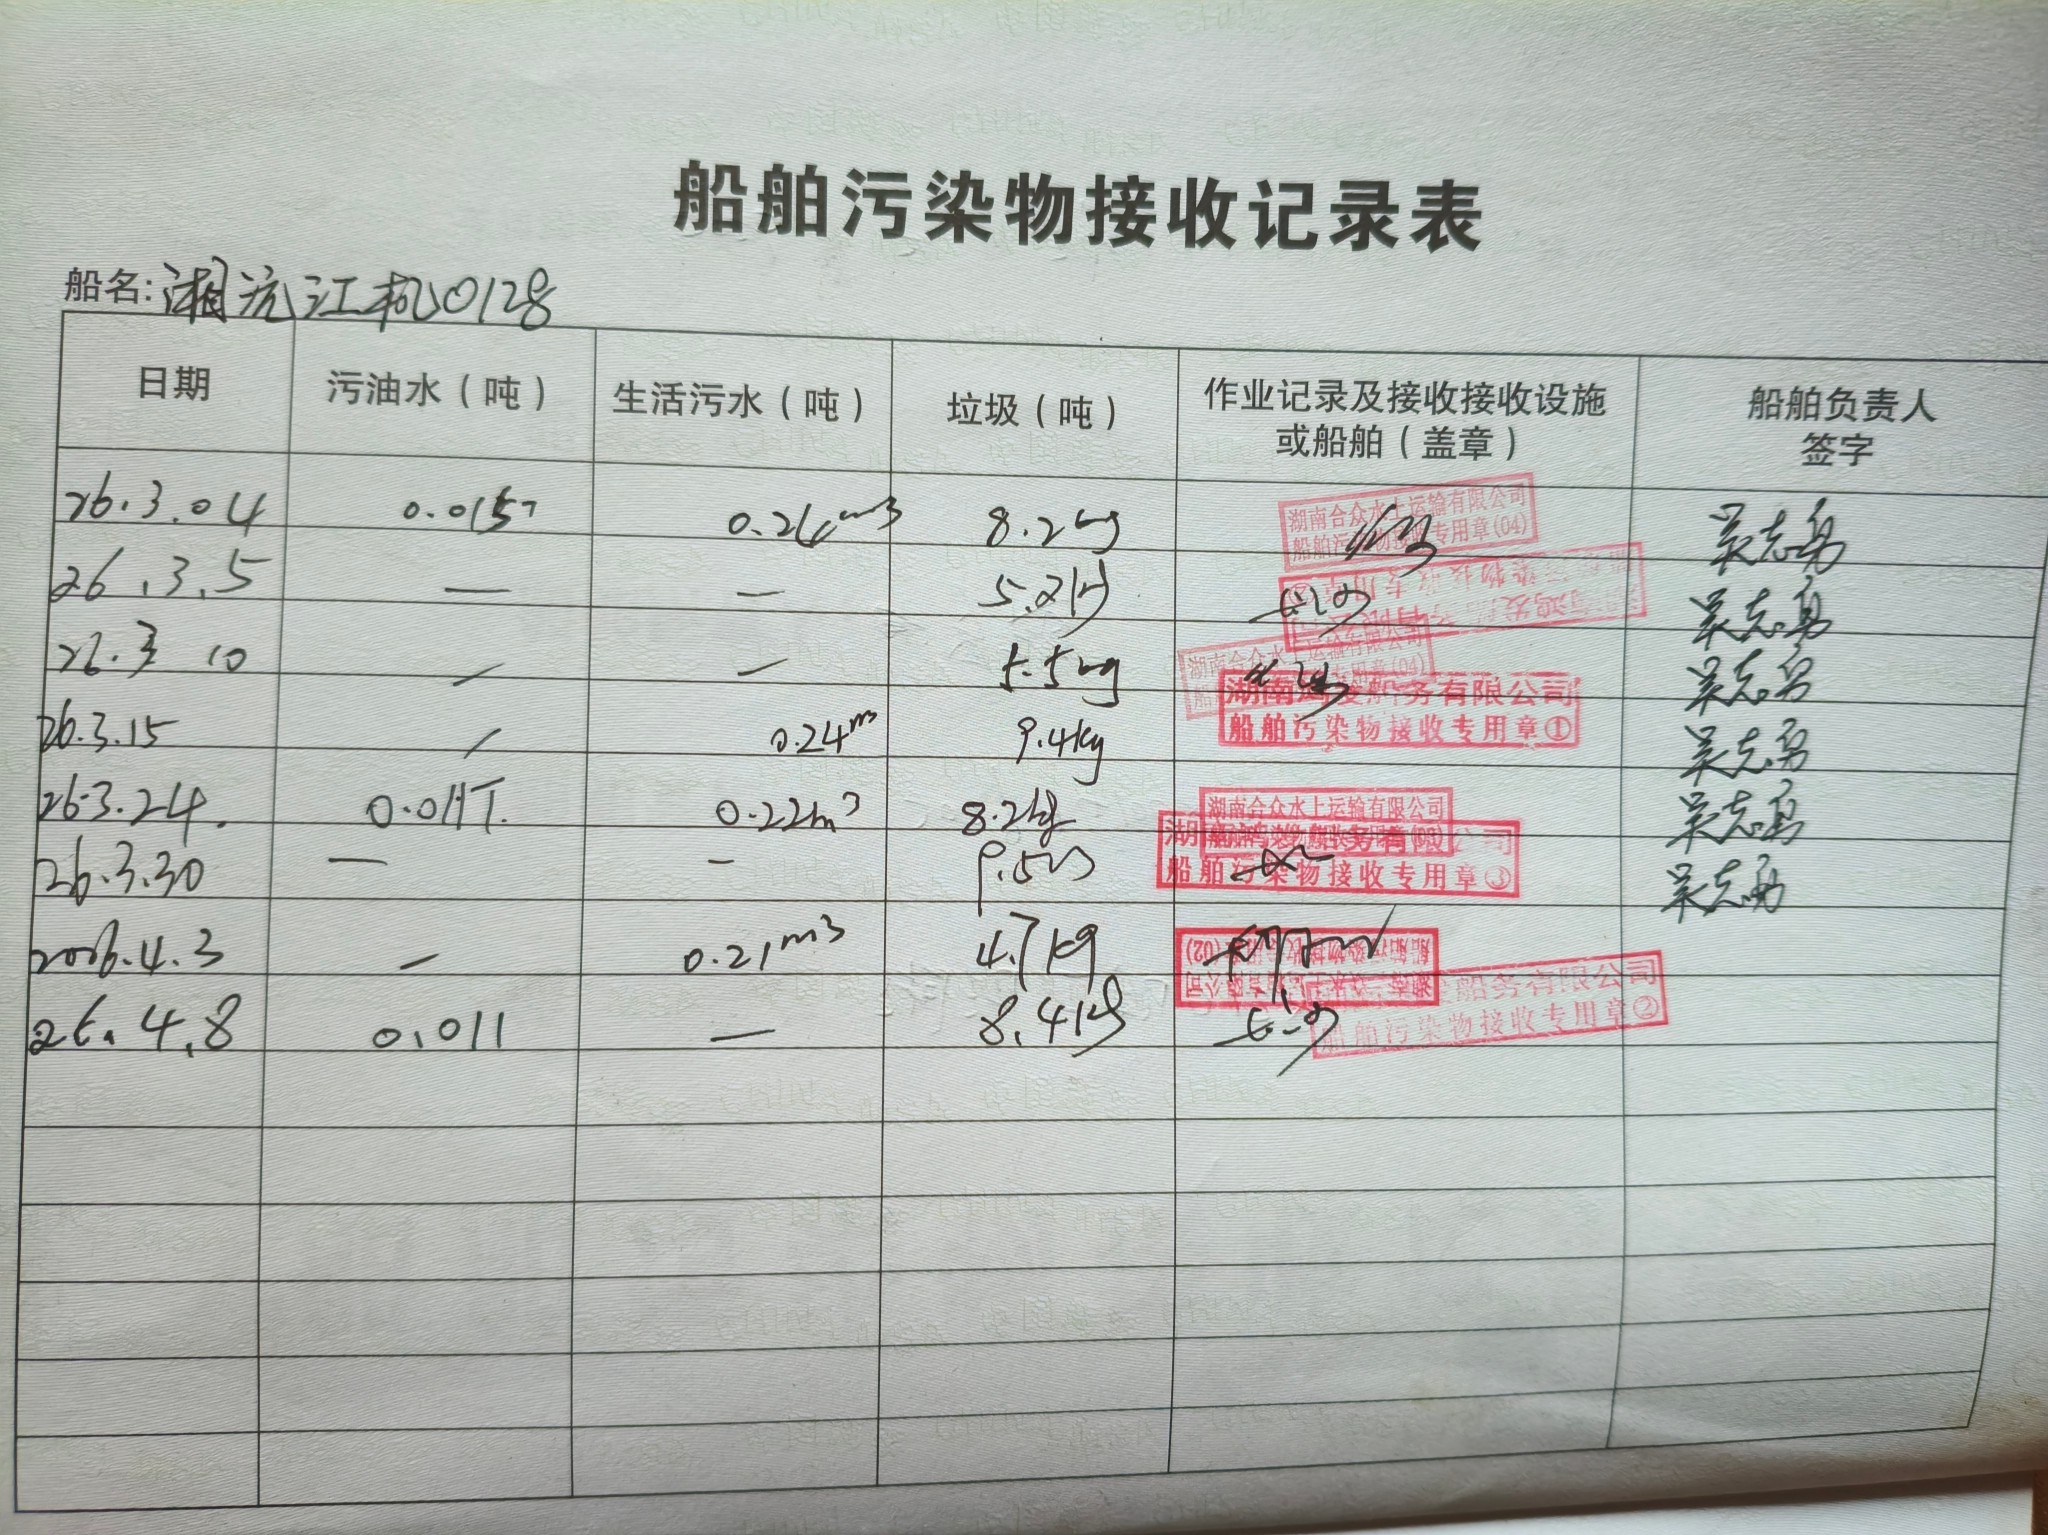 船舶污染物接收记录表
船名:湘沅江机0128
日期 污油水（吨） 生活污水（吨） 垃圾（吨） 作业记录及接收接收设施或船舶（盖章） 船舶负责人签字
26.3.04 0.015T 0.26m3 8.2kg 湖南合众水上运输有限公司 船舶污染物接收专用章(04) 吴志勇
26.3.5 — — 5.2kg 吴志勇
26.3 10 / — 5.5kg 湖南合众水上运输有限公司 专用章(04) 吴志勇
26.3.15 / 0.24m3 9.4kg 务有限公司 船舶污染物接收专用章① 吴志勇
26.3.24. 0.011T. 0.22m3 8.2kg 湖南合众水上运输有限公司 吴志勇
26.3.30 — — 9.5kg 船舶污染物接收专用章③ 吴志勇
2026.4.3 — 0.21m3 4.7kg (02)
26.4.8 0.011 — 8.4kg 船务有限公司 船舶污染物接收专用章②